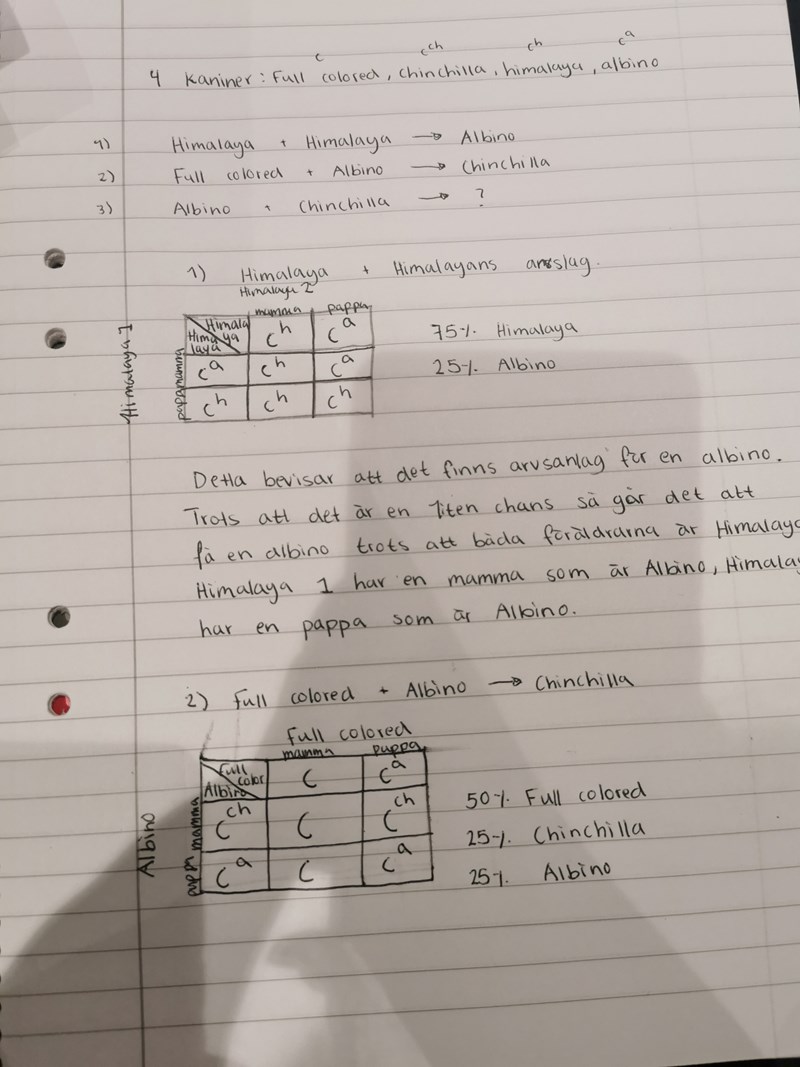 c cch ch ca
4 Kaniner: Full colored, chinchilla, himalaya, albino
1) Himalaya + Himalaya → Albino
2) Full colored + Albino → Chinchilla
3) Albino + Chinchilla → ?
1) Himalaya + Himalayans avslag.
Himalaya 2
mamma pappa
Himalaya 1
pappa mamma
Himala ya Himalaya Ch Ca
Ca Ch Ca
Ch Ch Ch
75% Himalaya
25% Albino
Detta bevisar att det finns arvsanlag för en albino.
Trots att det är en liten chans så går det att
få en albino trots att båda föräldrarna är Himalaya
Himalaya 1 har en mamma som är Albino, Himalay
har en pappa som är Albino.
2) Full colored + Albino → Chinchilla
Full colored
mamma pappa
Albino
pappa mamma
Full color Albino C Ca
Cch C Cch
Ca C Ca
50% Full colored
25% Chinchilla
25% Albino